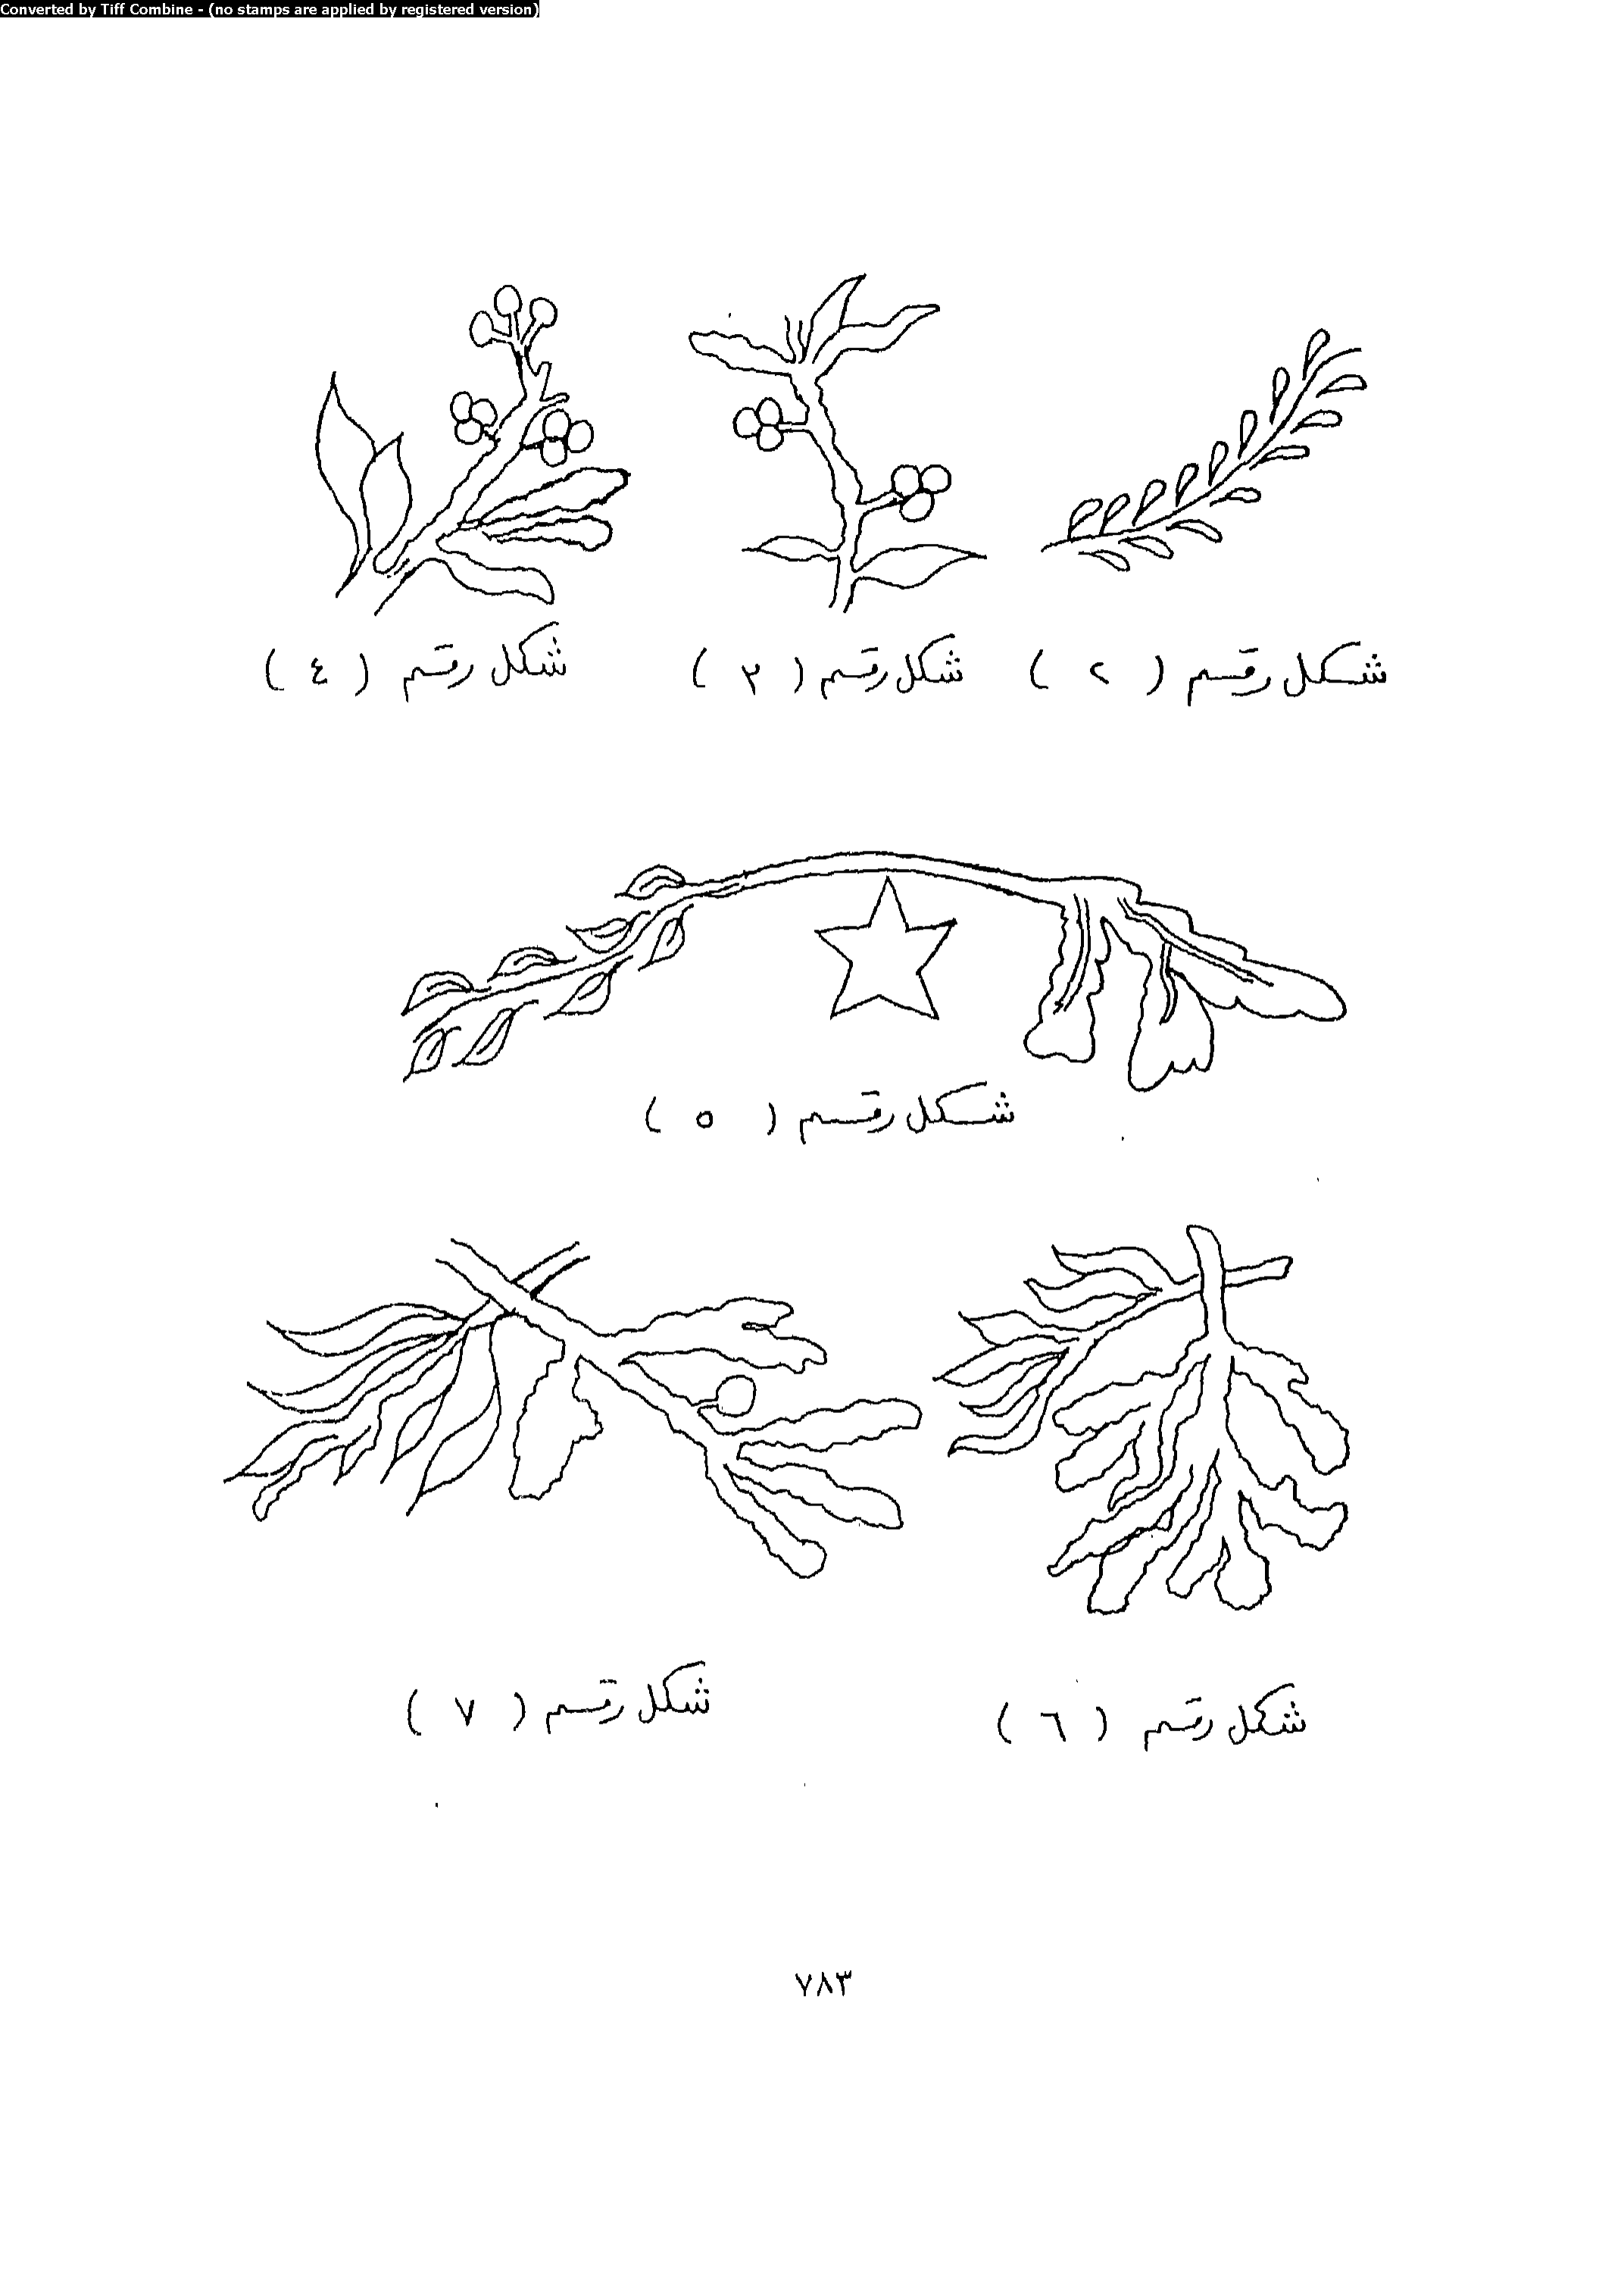 Converted by Tiff Combine - (no stamps are applied by registered version)
شكل رقم ( ٢ )
شكل رقم ( ٣ )
شكل رقم ( ٤ )
شكل رقم ( ٥ )
شكل رقم ( ٦ )
شكل رقم ( ٧ )
٧٨٣